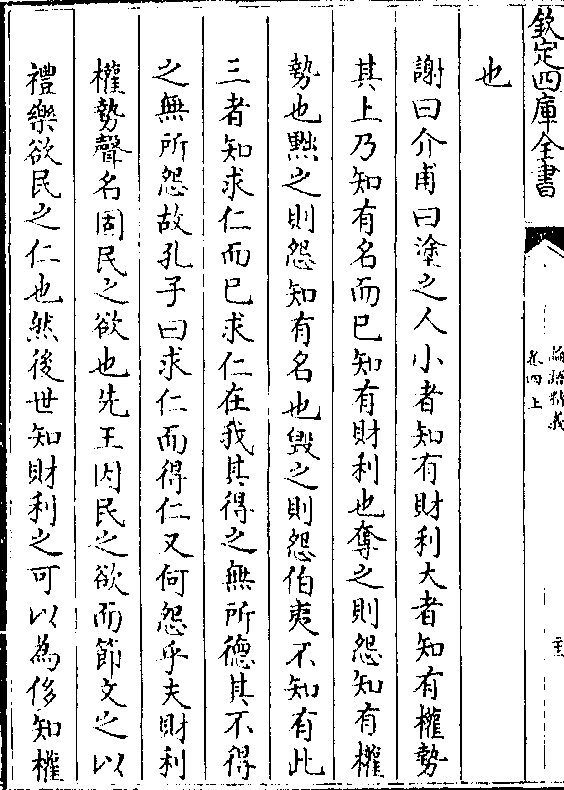 欽定四庫全書
論語精義
卷四上
也
謝曰介甫曰塗之人小者知有財利大者知有權勢
其上乃知有名而已知有財利也奪之則怨知有權
勢也黜之則怨知有名也毁之則怨伯夷不知有此
三者知求仁而已求仁在我其得之無所德其不得
之無所怨故孔子曰求仁而得仁又何怨乎夫財利
權勢聲名固民之欲也先王因民之欲而節文之以
禮樂欲民之仁也然後世知財利之可以為侈知權